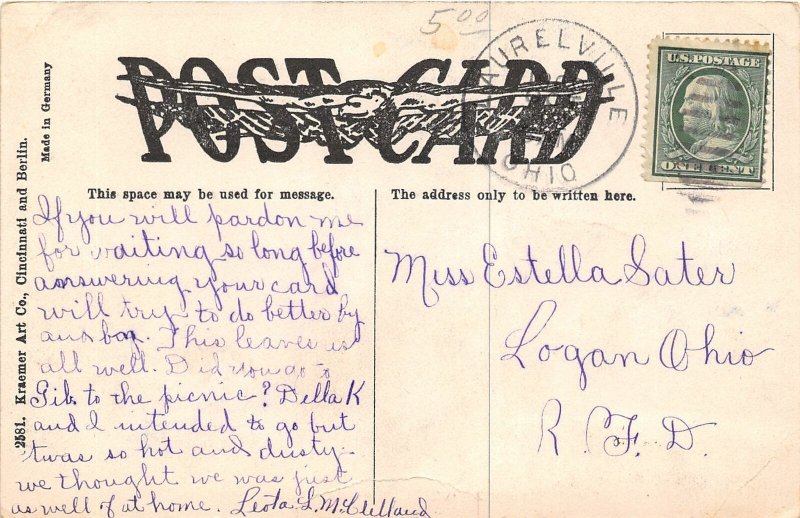 5 00
POST CARD
LAURELVILLE
OHIO
U.S. POSTAGE
ONE CENT
Made in Germany
2581. Kraemer Art Co., Cincinnati and Berlin.
This space may be used for message.
If you will pardon me
for waiting so long before
answering your card
will try to do better by
and by. This leaves us
all well. Did you go to
Gib. to the picnic? Della K
and I intended to go but
'twas so hot and dusty
we thought we was just
as well off at home. Leota L. McClelland
The address only to be written here.
Miss Estella Sater
Logan Ohio
R. F. D.